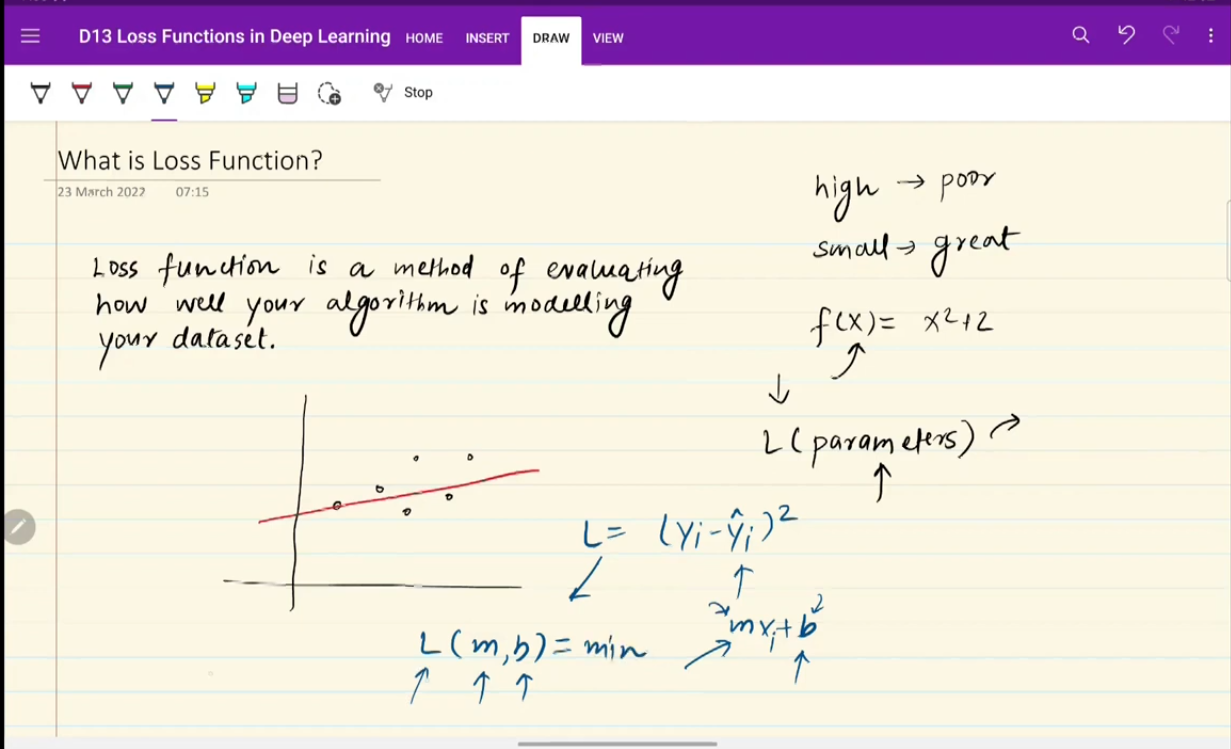 D13 Loss Functions in Deep Learning HOME INSERT DRAW VIEW
Stop
What is Loss Function?
23 March 2022 07:15
Loss function is a method of evaluating
how well your algorithm is modelling
your dataset.
high → poor
small → great
f(x) = x²+2
L(parameters)
L = (yi - ŷi)²
mxi + b
L(m,b) = min